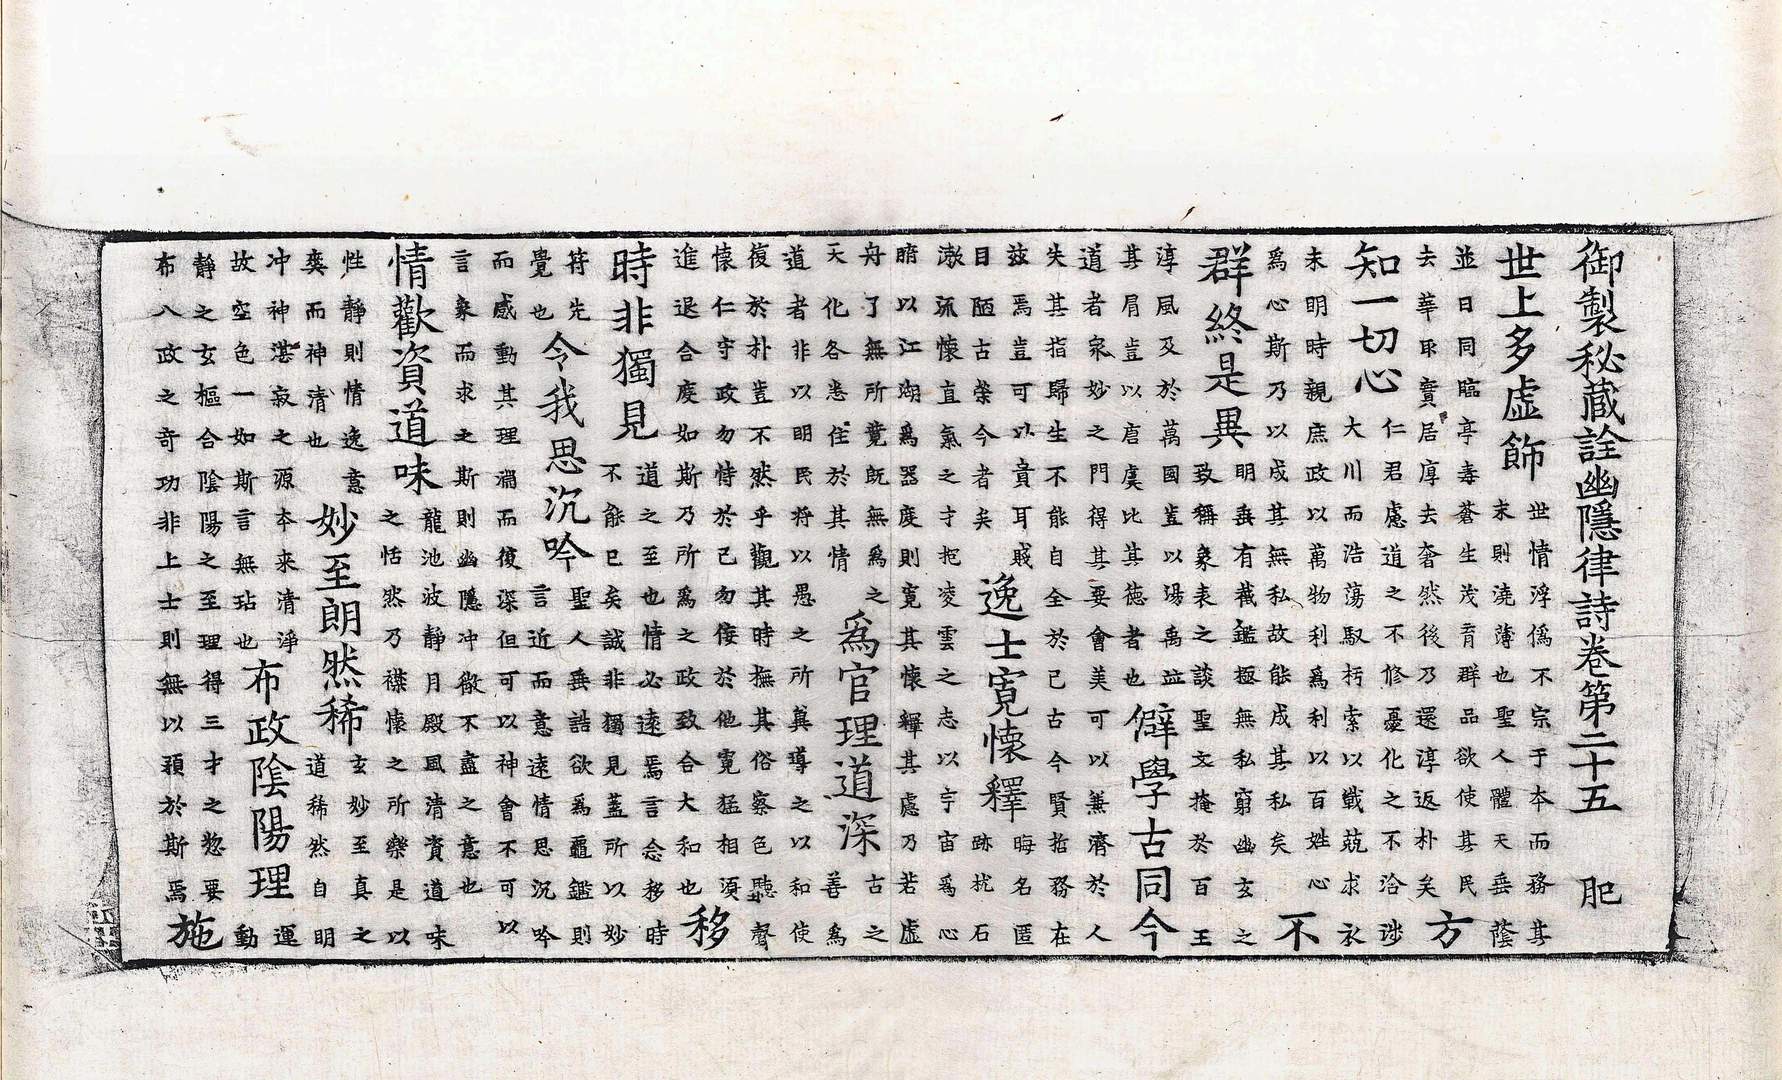 御製秘藏詮幽隱律詩卷第二十五 肥
世上多虛飾 世情浮偽不宗于夲而務其
末則澆薄也聖人體天垂蔭
並日同臨亭毒蒼生茂育群品欲使其民
去華取實居厚去奢然後乃還淳返朴矣 方
知一切心 仁君慮道之不修憂化之不洽涉
大川而浩蕩馭朽索以戰兢求衣
未明時親庶政以萬物利爲利以百姓心
爲心斯乃以成其無私故能成其私矣 不
群終是異 明垂有截鑑極無私窮幽玄之
致稱象表之談聖文掩於百王
淳風及於萬國豈以湯禹竝
其肩豈以唐虞比其德者也 僻學古同今
道者眾妙之門得其要會美可以兼濟於人
失其指歸生不能自全於己古今賢哲務在
茲焉豈可以貴耳賤
目陋古榮今者矣 逸士寬懷釋 晦名匿
跡扰石
漱流懷直氣之才抱凌雲之志以宇宙爲心
暗以江湖爲器度則寬其懷釋其慮乃若虛
舟了無所竟既無爲之
天化各恙住於其情 爲官理道深 古之
善爲
道者非以明民將以愚之所冀導之以和使
復於朴豈不然乎觀其時撫其俗察色聽聲
懷仁守政勿恃於己勿於他寬猛相須
進退合度如斯乃所爲之政致合大和也 移
時非獨見 道之至也情必遠焉言念移時
不能已矣誠非獨見蓋所以妙
符先
覺也 令我思沉吟 聖人垂誥欲爲龜鑑則
言近而意遠情思沉吟
而感動其理淵而復深但可以神會不可以
言象而求之斯則幽隱冲微不盡之意也
情歡資道味 龍池波靜月殿風清資道味
之恬然乃襟懷之所樂是以
性靜則情逸意
爽而神清也 妙至朗然稀 玄妙至真之
道稀然自明
冲神湛寂之源夲来清淨
故空色一如斯言無玷也 布政陰陽理 運
動
靜之玄樞合陰陽之至理得三才之惣要
布八政之奇功非上士則無以預於斯焉 施